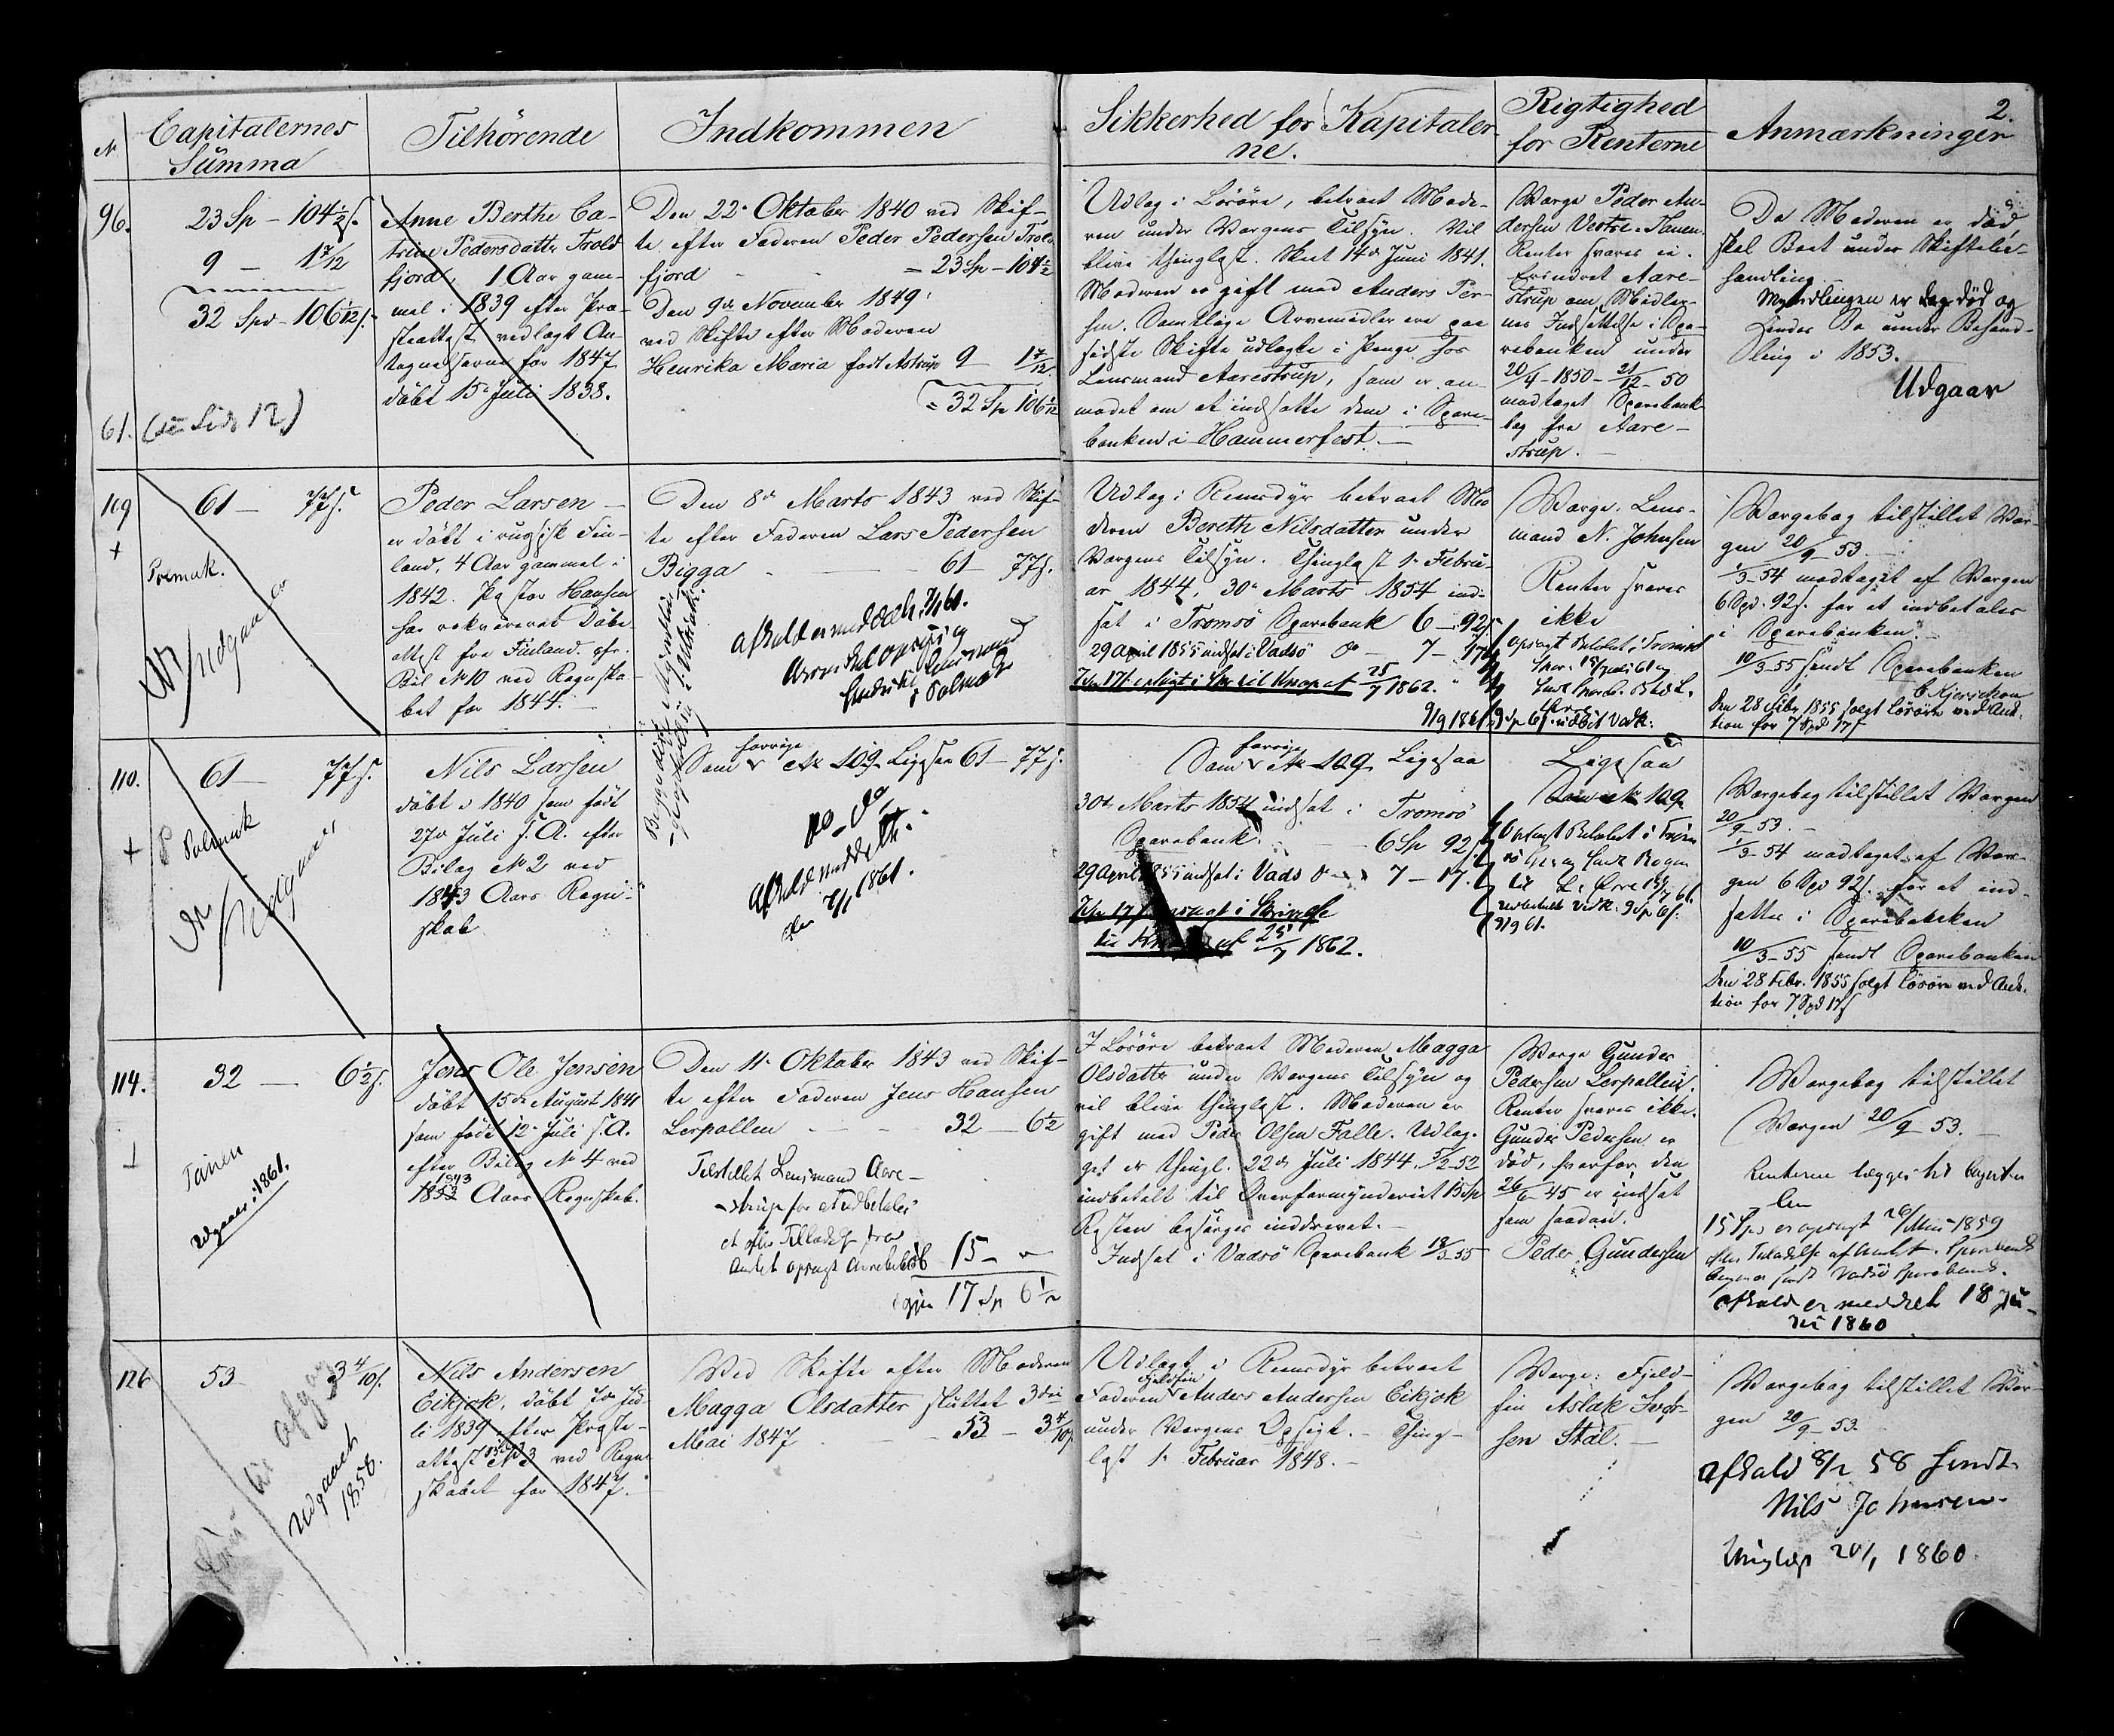 2.
N
Capitalernes
Summa
Tilhörende
Indkommen
Sikkerhed for Kapitaler
ne.
Rigtighed
for Renterne
Anmærkninger
96.
23 Sp - 104½ s.
9 - 1 7/12
32 Spd - 106 1/12 s.
61. (se Side 12)
Anne Berthe Ca-
trine Pedersdatter Trold
fjord, 1 Aar gam-
mel i 1839 efter Præ-
steattest vedlagt An-
tegnelserne for 1847
döbt 15de Juli 1838.
Den 22de Oktober 1840 ved Skif-
te efter Faderen Peder Pedersen Trold
fjord - - = 23 Sp - 104½
Den 9de November 1849
ved Skifte efter Moderen
Henrika Maria født Astrup 9 - 1 7/12
= 32 Sp 106 1/12
Udlag i Lösöre, betroet Mode-
ren under Vergens Tilsyn. Vil
blive thinglæst. Skeet 14de Juni 1841.
Moderen er gift med Anders Per-
sen. Samtlige Arvemidler ere paa
sidste Skifte udlagte i Penge hos
Lensmand Aarestrup, som er an-
modet om at indsætte dem i Spare-
banken i Hammerfest.
Værge Peder An-
dersen Vestre-Tanen.
Renter svares ei.
Erindret Aare-
strup om Midler-
nes Indsættelse i Spa-
rebanken under
20/4 - 1850 - 21/12 - 50
modtaget Sparebank
bog fra Aare-
strup.
Da Moderen er död,
skal Boet under Skiftebe-
handling.
Myndlingen er død og
hendes Bo under Behand-
ling i 1853.
Udgaar
109
+
61 - 77 s.
Polmak.
Udgaar
Peder Larsen
er döbt i russisk Fin-
land, 4 Aar gammel i
1842. Pastor Hansen
har rekvireret Döbe
attest fra Finland. cfr.
Bil. N 10 ved Regnska-
bet for 1844.
Den 8de Marts 1843 ved Skif-
te efter Faderen Lars Pedersen
Bigga - - 61 - 77 s.
Afkald er meddelt 7/1 61.
Polmak
Udlag i Rensdyr betroet Mo
deren Bereth Nilsdatter under
Vergens Tilsyn. Thinglæst 1te Febru-
ar 1844. 30te Marts 1854 ind-
sat i Tromsö Sparebank 6 - 92 s.
29 April 1855 indsat i Vadsö do - 7 - 17
25/7 1862.
9/9 1861
Værge. Lens-
mand N. Johnsen
Renter svares
ikke
opsagt Beløbet i Tromsö
Værgebog tilstillet Vær-
gen 20/9 - 53.
1/3 - 54 modtaget af Værgen
6 Spd. 92 s. for at indbetales
i Sparebanken.
10/3 - 55 sendt Sparebanken
Den 28 Febr. 1855 solgt Lösöre ved Auk-
tion for 7 Spd 17 s
110.
+
61 - 77 s.
Polmak
Udgaaer
Nils Larsen
döbt i 1840 som födt
27de Juli s. A. efter
Bilag N 2 ved
1843 Aars Regn-
skab
Som forrige N 109 Ligesaa 61 - 77 s.
Afkald meddelt
den 7/1 1861.
Som forrige N 109 Ligesaa
30te Marts 1854 indsat i Tromsö
Sparebank. - - 6 Sp 92 s.
29 April 1855 indsat i Vadsö do 7 - 17.
25/7 1862.
Ligesaa
Som N 109
Opsagt Beløbet i Trom
9/9 61.
Værgebog tilstillet Vergen
20/9 - 53.
1/3 - 54 modtaget af Vær-
gen 6 Spd 92 s. for at ind-
sættes i Sparebanken
10/3 - 55 sendt Sparebanken
Den 28 Febr. 1855 solgt Lösöre ved Auk-
tion for 7 Spd 17 s
114.
32 - 6½ s.
Tanen
Udgaaer 1861.
Jens Ole Jensen
döbt 15de August 1841
som födt 12te Juli s. A.
efter Bilag N 4 ved
1843
1853 Aars Regnskab.
Den 11te Oktober 1843 ved Skif-
te efter Faderen Jens Hansen
Lerpollen - - 32 - 6½
Tilstillet Lensmand Aare-
strup for at udbetales
et efter Tilladelse fra
Amtet opsagt Arvebeløb 15 - "
igjen 17 Sp 6½
I Lösöre betroet Moderen Magga
Olsdatter under Vergens Tilsyn og
vil blive thinglæst. Moderen er
gift med Peder Olsen Falle. Udlæg-
get er thingl. 22de Juli 1844. 5/2 - 52
indbetalt til Overformynderiet 15 Sp
Resten besörges inddrevet.
Indsat i Vadsö Sparebank 18/3 - 55
Værge Gunder
Pedersen Lerpollen.
Renter svares ikke.
Gunder Pedersen er
död, hvorfor den
26/6 - 45 er indsat
som saadan.
Peder Gundersen
Værgebog tilstillet
Værgen 20/9 - 53.
Renterne lægges til Capita
len
15 Spd er opsagt 26 Mai 1859
efter Tilladelse af Amtet. Sparebank
bogen sendt Vadsö Sparebank.
Afkald er meddelt 18 Ju-
ni 1860
126
53 - 3 4/10 s.
afgaa
Udgaaet
1858.
Nils Andersen
Eikjok, döbt 7de Ju-
li 1839 efter Præste-
attest N 3 ved Regn-
skabet for 1847.
Ved Skifte efter Moderen
Magga Olsdatter sluttet 3die
Mai 1847 - - 53 - 3 4/10 s.
Udlagt i Rensdyr betroet
Faderen Fjeldfin Anders Andersen Eikjok
under Vergens Opsigt. - Thing-
læst 1te Februar 1848.
Værge: Fjeld-
fin Aslak Iver-
sen Stal.
Værgebog tilstillet Vær-
gen 20/9 - 53.
Afkald 8/2 58 sendt
Nils Johnsen.
Thinglæst 20/1 1860.